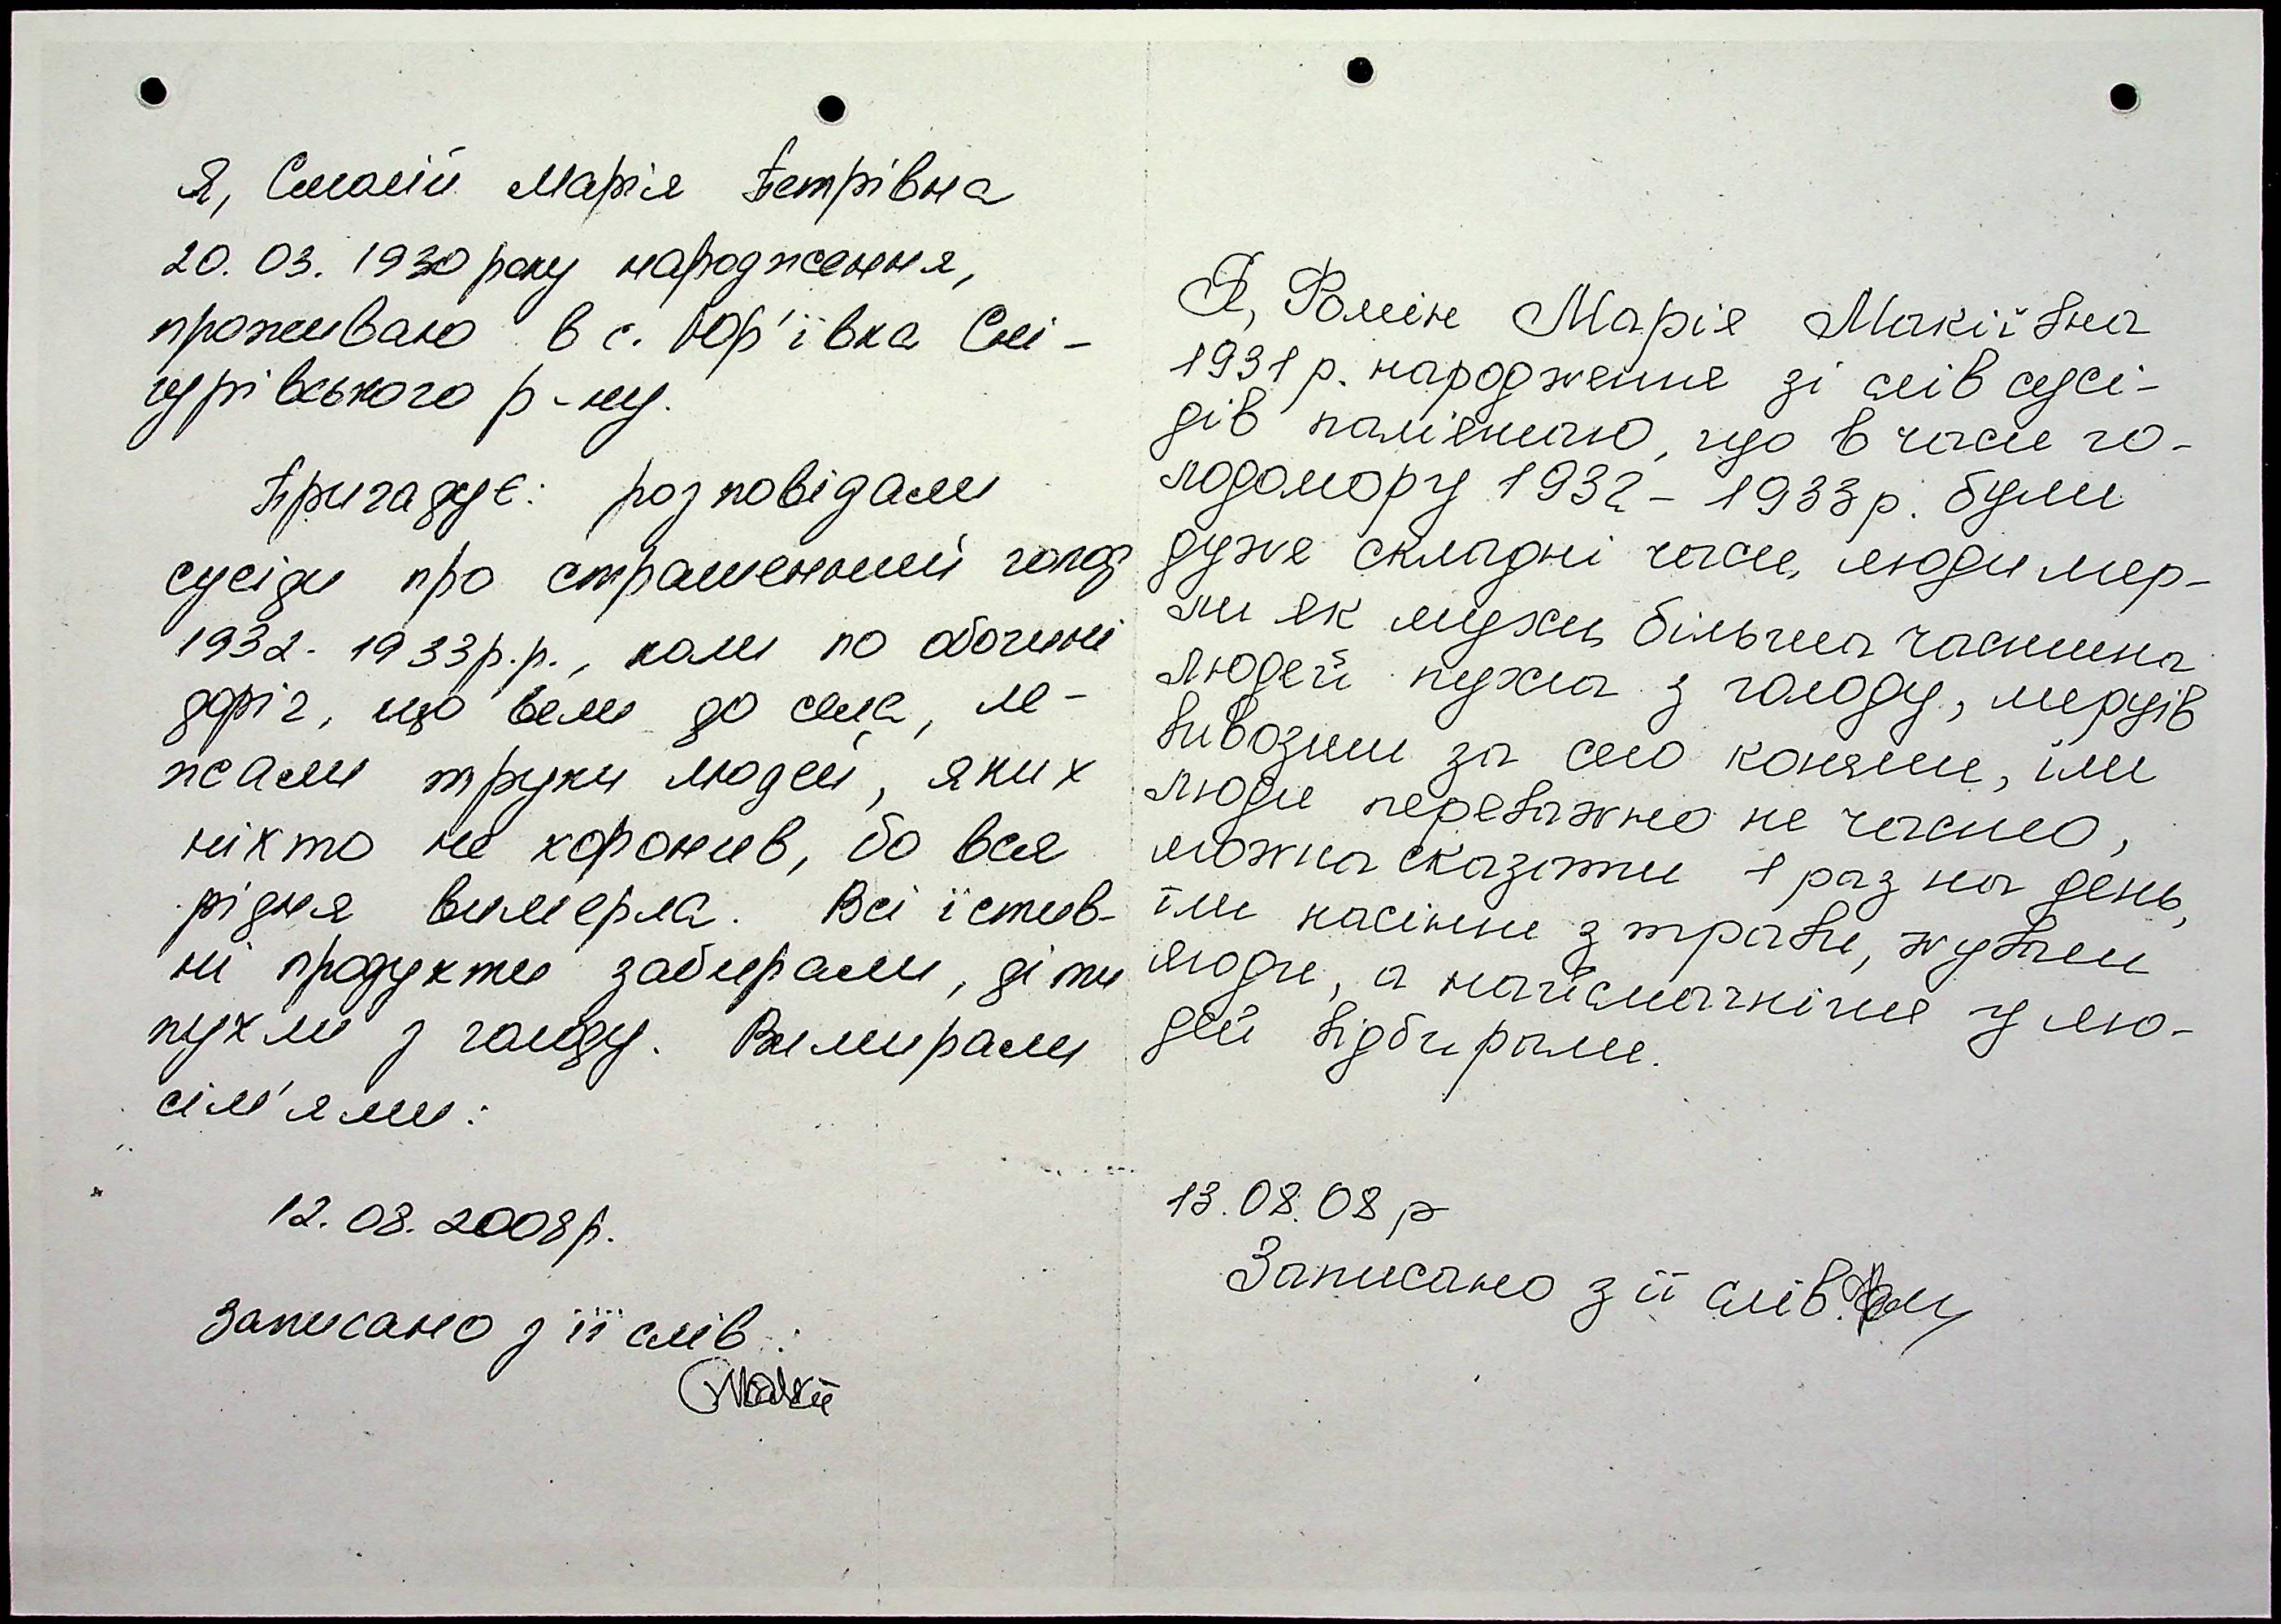 Я, Смалій Марія Петрівна
20. 03. 1930 року народження,
проживаю в с. Юр'ївка Сні-
гурівського р-ну.
Пригадує: розповідали
сусіди про страшенний голод
1932-1933р.р., коли по обочині
доріг, що вели до села, ле-
жали трупи людей, яких
ніхто не хоронив, бо вся
рідня вимерла. Всі їстів-
ні продукти забирали, діти
пухли з голоду. Вимирали
сім'ями.
12. 08. 2008р.
Записано з її слів:
Я, Фомін Марія Макіївна
1931 р. народження зі слів сусі-
дів памʼятаю, що в часи го-
лодомору 1932 - 1933 р. були
дуже складні часи, люди мер-
ли як мухи, більша частина
людей пухла з голоду, мерців
вивозили за село конями, їли
люди переважно не часто,
можна сказати 1 раз на день,
їли насіння з трави, жували
люди, а найсмачніше у лю-
дей відбирали.
13. 08. 08 р
Записано з її слів.